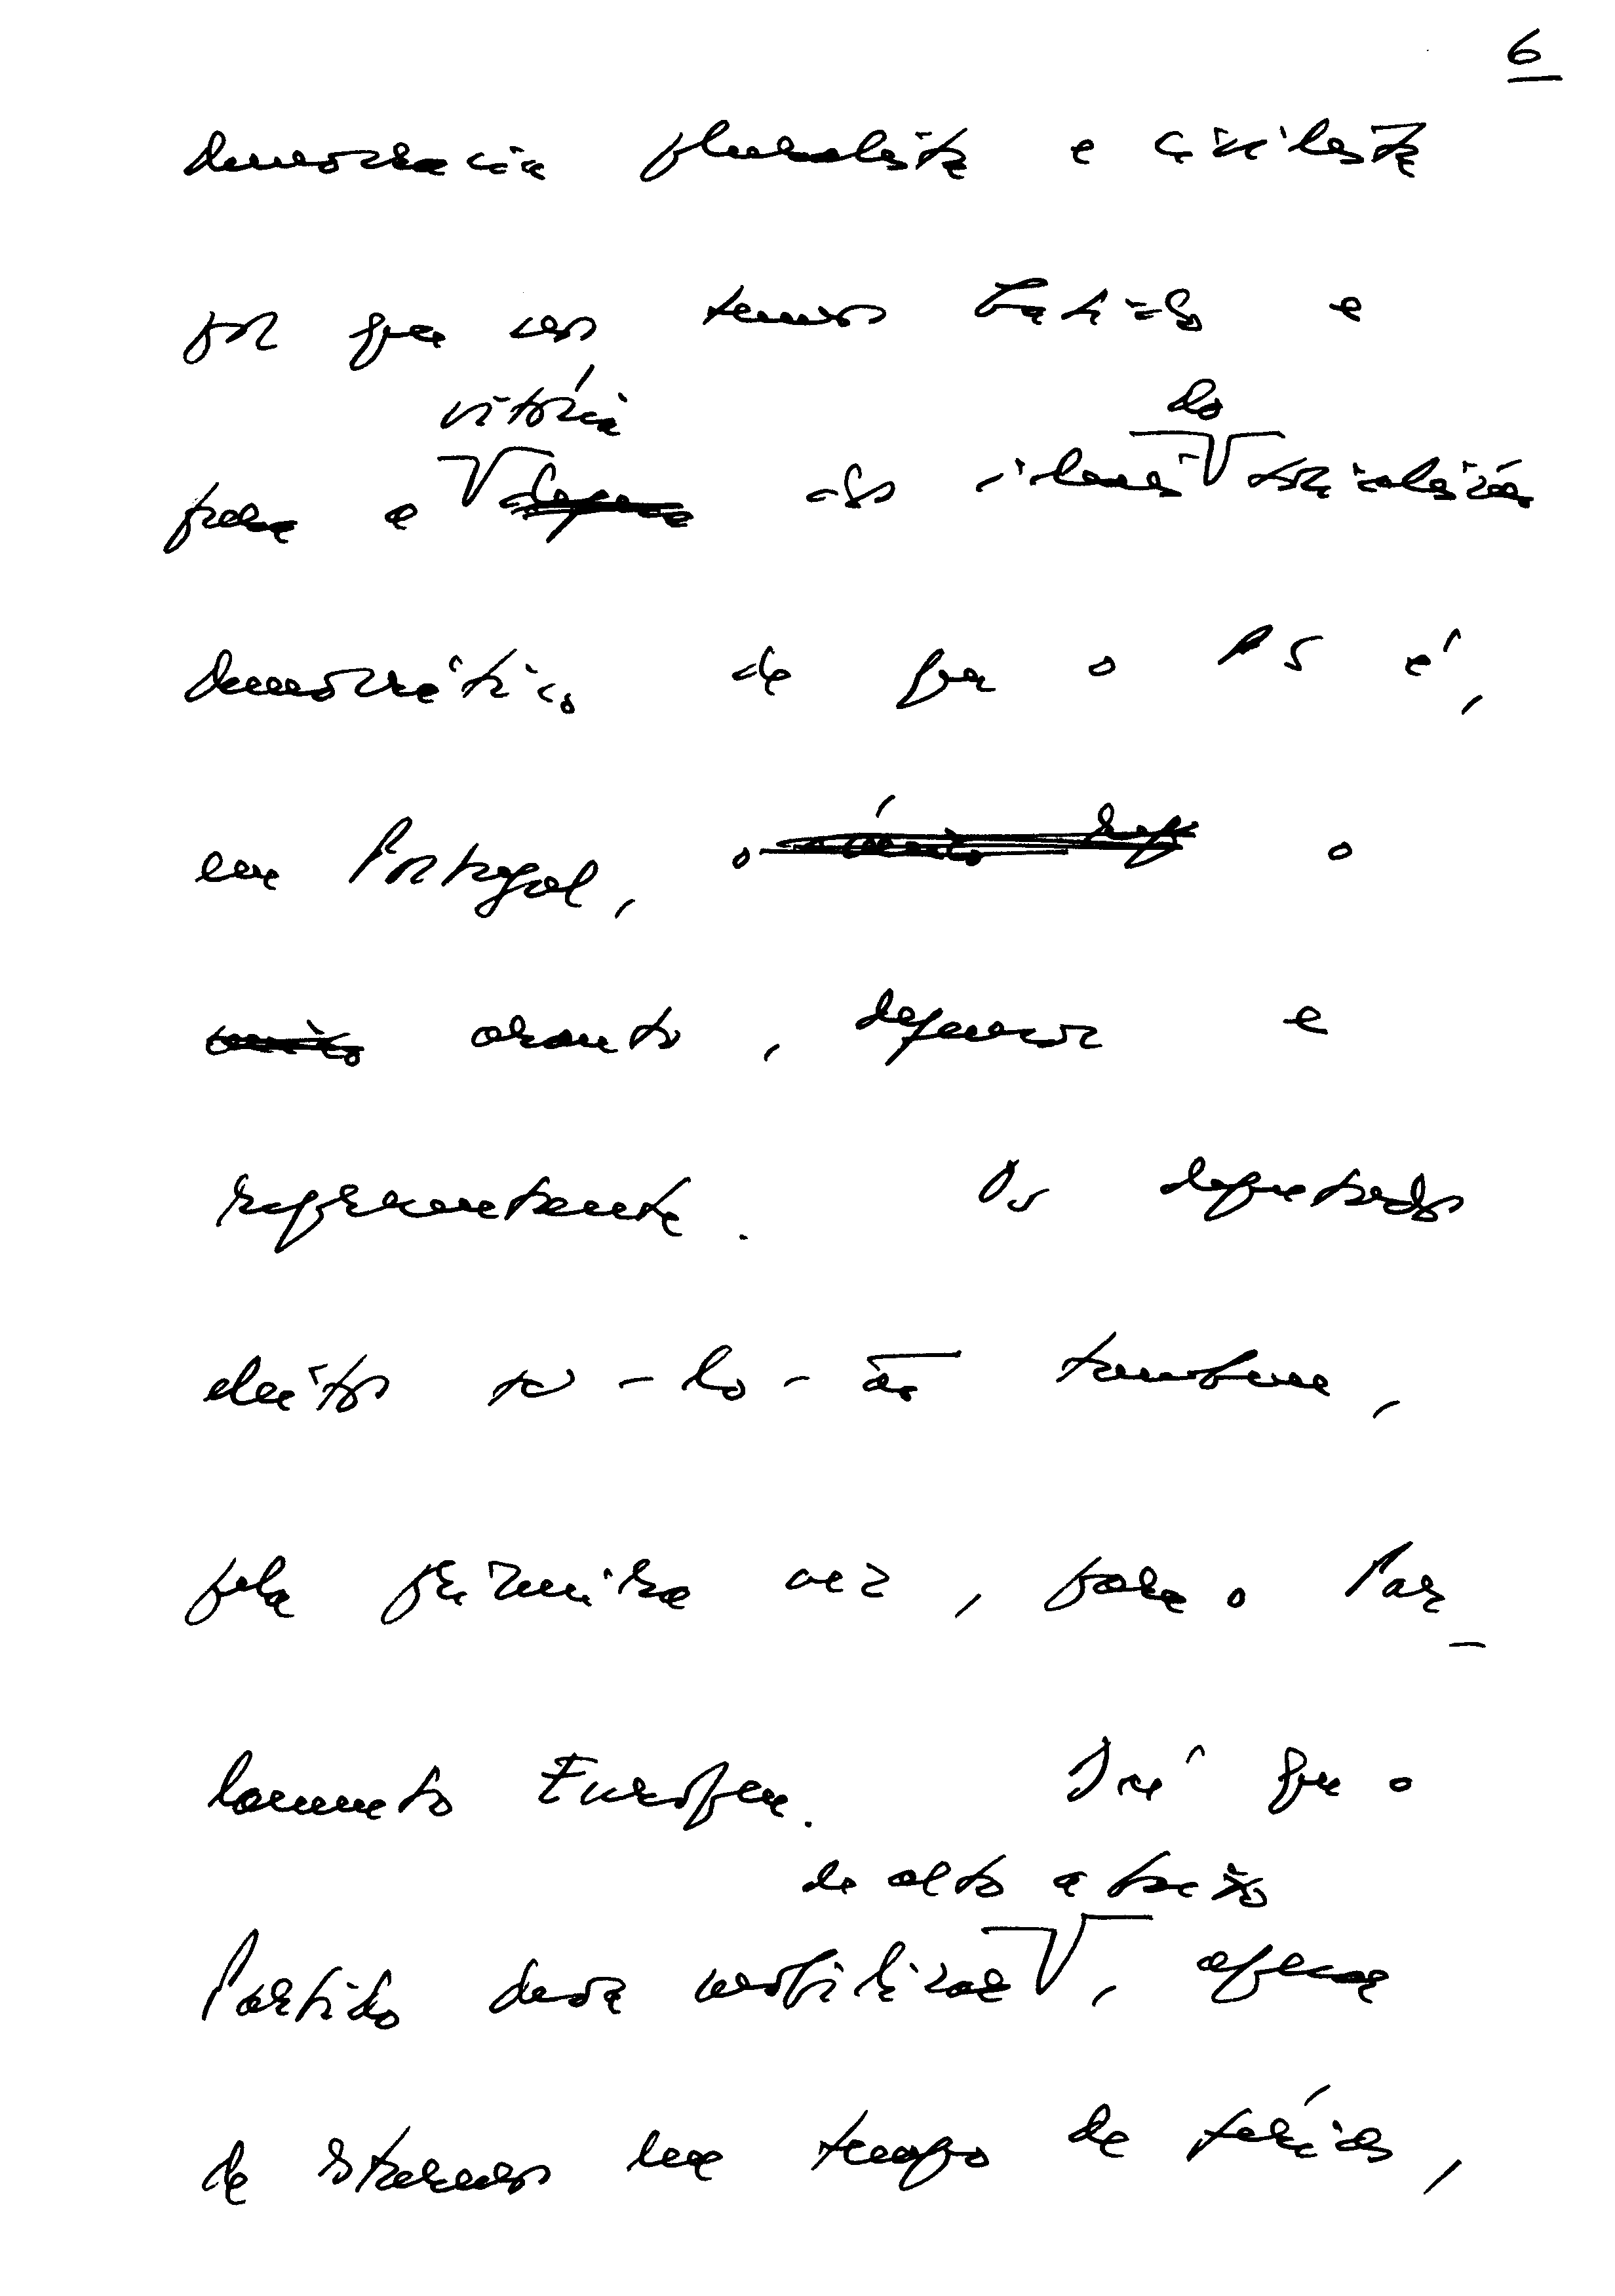 6
democracia pluralista e civilista
por que nos temos batido e
vitória do
para a defesa dos ideais socialismo
democrático de que o PS é,
em Portugal, o único rep o
único arauto, defensor e
representante. Os deputados
eleitos sê-lo-ão também,
pela primeira vez, para o Par-
lamento Europeu. Irá que o
de alto a baixo
Partido deva mobilizar, apesar
de estarmos em tempo de férias,